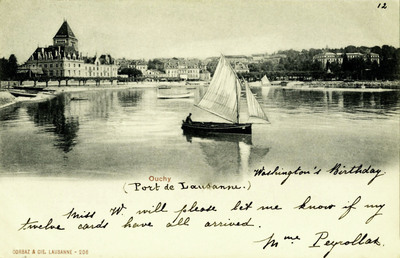 12
Ouchy
(Port de Lausanne.)
Washington's Birthday
Miss W. will please let me know if my
twelve cards have all arrived.
Mme Peyrollaz.
CORBAZ & CIE. LAUSANNE - 206